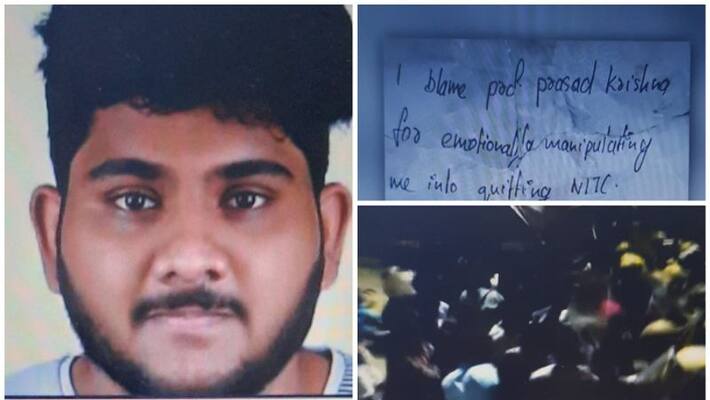 I blame prof. prasad Krishna
for emotionally manipulating
me into quitting NITC.